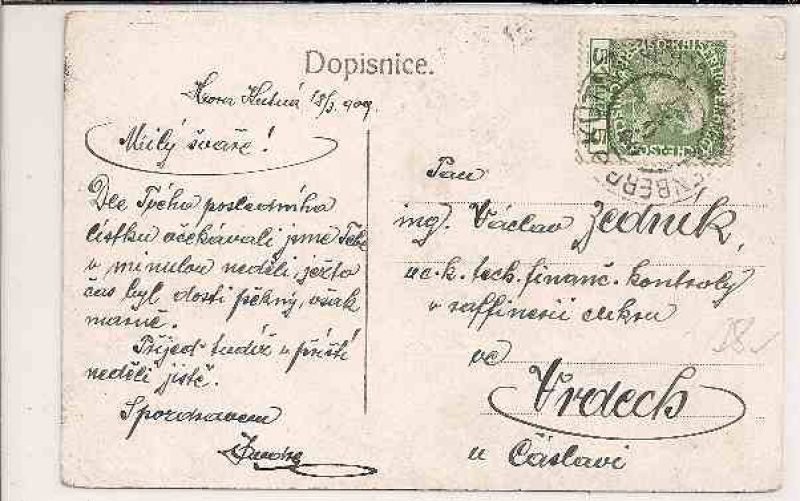 Dopisnice.
Hora Kutná 18/3 909
Milý švaře!
Dle Tvého posledního
lístku očekávali jsme Tebe
v minulou neděli, ježto
čas byl dosti pěkný, však
marně.
Přijeď tudíž v příští
neděli jistě.
S pozdravem
Pan
ing. Václav Zedník,
u c. k. tech. finanč. kontroly
v raffinerii cukru
ve
Vrdech
u Čáslavi